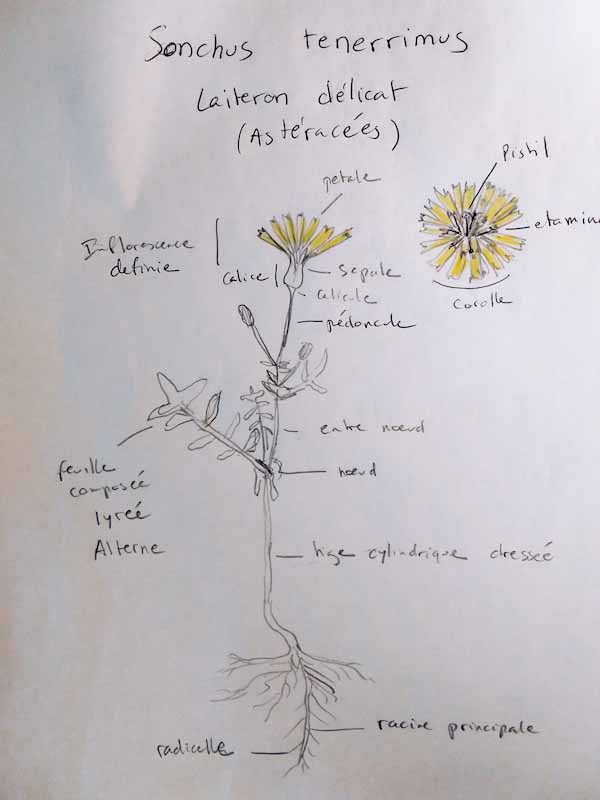 Sonchus tenerrimus
Laiteron délicat
(Astéracées)
Pistil
petale
etamine
Inflorescence
definie
calice
sepale
calicule
corolle
pédoncule
entre nœud
feuille
composéé
lyréé
Alterne
nœud
tige cylindrique dresséé
racine principale
radicelle